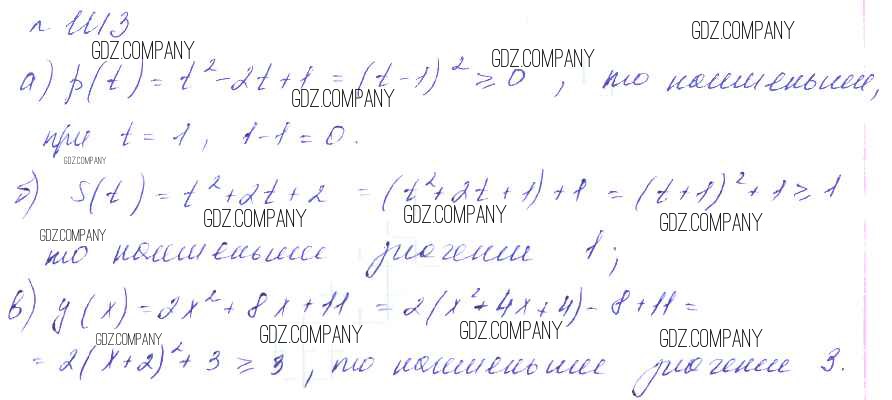 n 1113
GDZ.COMPANY
GDZ.COMPANY
GDZ.COMPANY
а) p(t) = t²-2t+1 = (t-1)² ≥ 0, то наименьшее,
GDZ.COMPANY
при t = 1, 1-1 = 0.
GDZ.COMPANY
б) S(t) = t²+2t+2 = (t²+2t+1)+1 = (t+1)²+1 ≥ 1
GDZ.COMPANY
GDZ.COMPANY
GDZ.COMPANY
GDZ.COMPANY
то наименьшее значение 1;
в) y(x) = 2x²+8x+11 = 2(x²+4x+4)-8+11 =
GDZ.COMPANY
GDZ.COMPANY
GDZ.COMPANY
GDZ.COMPANY
= 2(x+2)²+3 ≥ 3, то наименьшее значение 3.